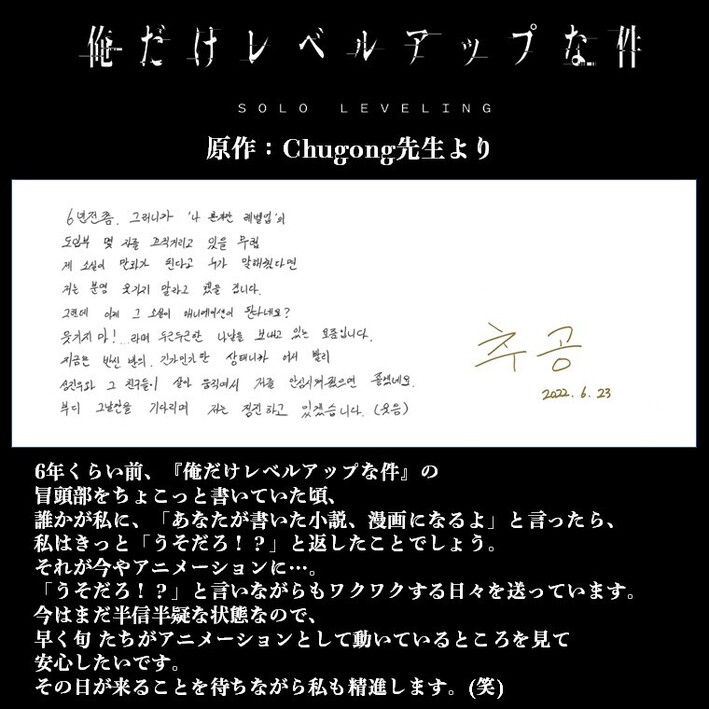 俺だけレベルアップな件
SOLO LEVELING
原作：Chugong先生より
6년전쯤. 그러니까 '나 혼자만 레벨업'의
도입부 몇 자를 끄적거리고 있을 무렵
제 소설이 만화가 된다고 누가 말해줬다면
저는 분명 웃기지 말라고 했을 겁니다.
그런데 이제 그 소설이 애니메이션이 된다네요?
웃기지 마!...라며 두근두근한 나날을 보내고 있는 요즘입니다.
지금은 반신 반의. 긴가민가한 상태니까 어서 빨리
성진우와 그 친구들이 살아 움직여서 저를 안심시켜줬으면 좋겠네요.
부디 그날만을 기다리며 저는 정진하고 있겠습니다. (웃음)
추공
2022. 6. 23
6年くらい前、『俺だけレベルアップな件』の
冒頭部をちょこっと書いていた頃、
誰かが私に、「あなたが書いた小説、漫画になるよ」と言ったら、
私はきっと「うそだろ！？」と返したことでしょう。
それが今やアニメーションに…。
「うそだろ！？」と言いながらもワクワクする日々を送っています。
今はまだ半信半疑な状態なので、
早く旬 たちがアニメーションとして動いているところを見て
安心したいです。
その日が来ることを待ちながら私も精進します。(笑)